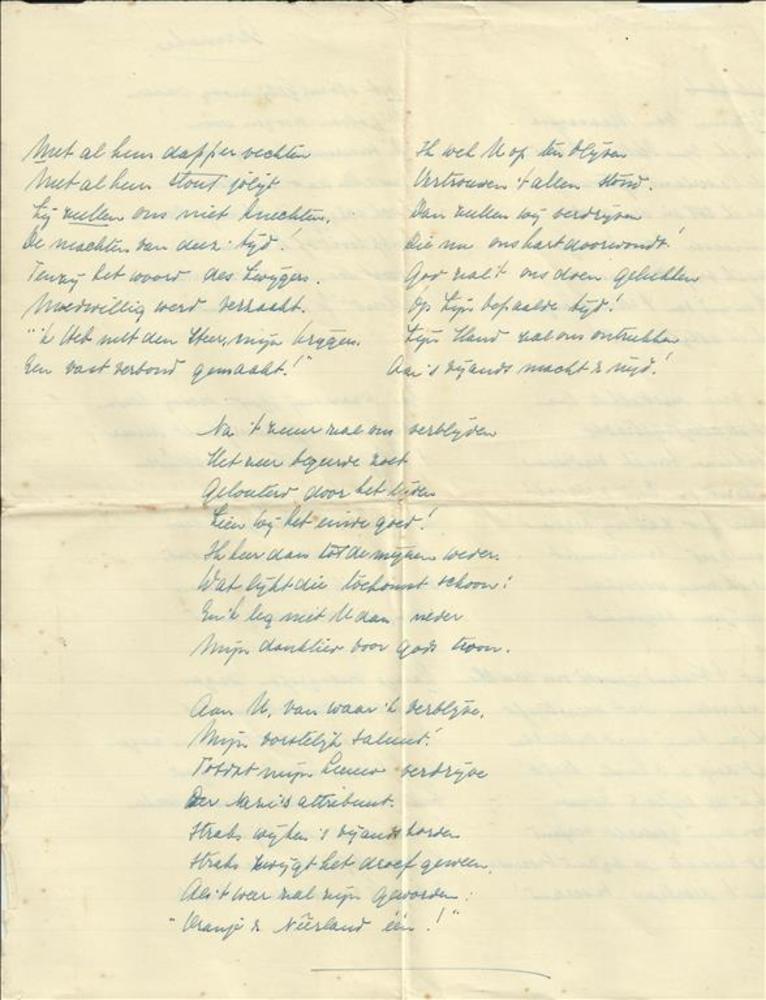 Met al hun dapper vechten
Met al hun stout jolijt
Zij zullen ons niet knechten,
De machten van deez' tijd!
Tenzij het woord des Zwijgers.
Moedwillig werd verzaakt.
"'k Heb met den Heer, mijn krijgen.
Een vast verbond gemaakt!"
Ik wek U op ten blijven
Vertrouwen t allen stond.
Dan zullen wij verdrijven
Die nu ons hart doorwondt!
God zal 't ons doen gelukken
Op Zijn bepaalde tijd!
Zijn Hand zal ons ontrukken
Aan 's vijands macht & nijd!
Na 't zuur zal ons verblijden
Het zeer begeerde zoet
Gelouterd door het lijden
Zien wij het einde goed!
Ik keer dan tot de mijnen weder.
Wat lijkt die toekomst schoon!
En 'k leg met U dan neder
Mijn danklied voor Gods troon.
Aan U, van waar 'k verblijve,
Mijn vorstelijk saluut!
Totdat mijn Leeuw verdrijve
Der Nazi's attribuut.
Straks wijken 's vijands horden
Straks zwijgt het droef geween,
Als 't weer zal zijn geworden:
"Oranje & Neerland één!"